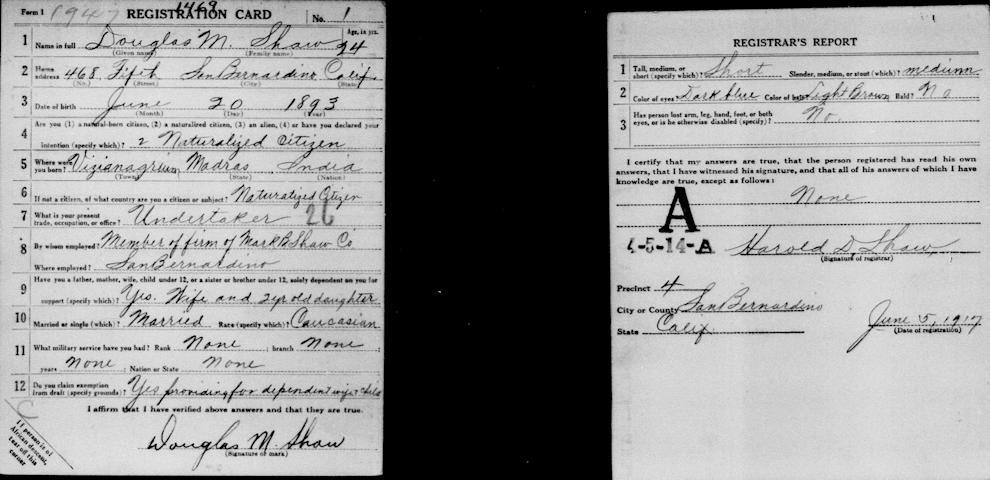 Form 1 1947 REGISTRATION CARD 1469 No. 1
1 Name in full Douglas M. Shaw Age, in yrs. 24
(Given name) (Family name)
2 Home address 468 Fifth San Bernardino Calif
(No.) (Street) (City) (State)
3 Date of birth June 20 1893
(Month) (Day) (Year)
4 Are you (1) a natural-born citizen, (2) a naturalized citizen, (3) an alien, (4) or have you declared your
intention (specify which)? 2 Naturalized Citizen
5 Where were you born? Vizianagrium Madras India
(Town) (State) (Nation)
6 If not a citizen, of what country are you a citizen or subject? Naturalized Citizen
7 What is your present trade, occupation, or office? Undertaker 26
8 By whom employed? Member of firm of Mark B Shaw Co
Where employed? San Bernardino
9 Have you a father, mother, wife, child under 12, or a sister or brother under 12, solely dependent on you for
support (specify which)? Yes. Wife and 2yr old daughter
10 Married or single (which)? Married Race (specify which)? Caucasian
11 What military service have you had? Rank None ; branch None ;
years None ; Nation or State None
12 Do you claim exemption from draft (specify grounds)? Yes providing for dependent wife & child
I affirm that I have verified above answers and that they are true.
Douglas M. Shaw
(Signature or mark)
C
If person is of
African descent,
tear off this
corner
REGISTRAR'S REPORT
1 Tall, medium, or short (specify which)? Short Slender, medium, or stout (which)? medium
2 Color of eyes? Dark blue Color of hair? Light Brown Bald? No
3 Has person lost arm, leg, hand, foot, or both eyes, or is he otherwise disabled (specify)? No
I certify that my answers are true, that the person registered has read his own
answers, that I have witnessed his signature, and that all of his answers of which I have
knowledge are true, except as follows:
None
A
4-5-14-A Harold D. Shaw
(Signature of registrar)
Precinct 4
City or County San Bernardino
State Calif.
June 5, 1917
(Date of registration)